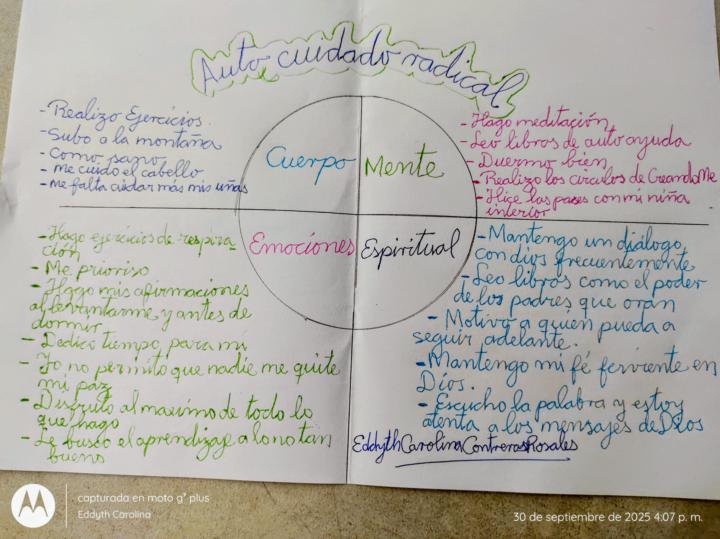 Auto cuidado radical
- Realizo Ejercicios.
- Subo a la montaña
- Como sano
- Me cuido el cabello
- Me falta cuidar más mis uñas
Cuerpo
Mente
- Hago meditación
- Leo libros de auto ayuda
- Duermo bien
- Realizo los circulos de CreandoMe
- Hice las paces con mi niña
interior
Emociones
Espiritual
- Hago ejercicios de respira
ción
- Me prioriso
- Hago mis afirmaciones
al levantarme y antes de
dormir
- Dedico tiempo para mi
- Yo no permito que nadie me quite
mi paz
- Disfruto al maximo de todo lo
que hago
- Le busco el aprendizaje a lo no tan
bueno
- Mantengo un diálogo
con dios frecuentemente
- Leo libros como el poder
de los padres que oran
- Motivo a quien pueda a
seguir adelante.
- Mantengo mi fé ferviente en
Dios.
- Escucho la palabra y estoy
atenta a los mensajes de Dios
Eddyth Carolina Contreras Rosales
capturada en moto g⁷ plus
Eddyth Carolina
30 de septiembre de 2025 4:07 p. m.